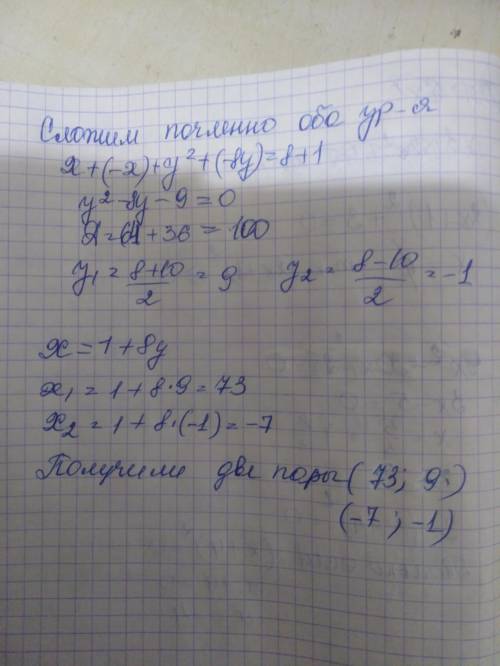 Сложим почленно оба ур-я
x+(-x)+y²+(-8y)=8+1
y²-8y-9=0
D=64+36=100
y₁=(8+10)/2=9   y₂=(8-10)/2=-1
x=1+8y
x₁=1+8·9=73
x₂=1+8·(-1)=-7
Получили две пары (73; 9)
(-7; -1)